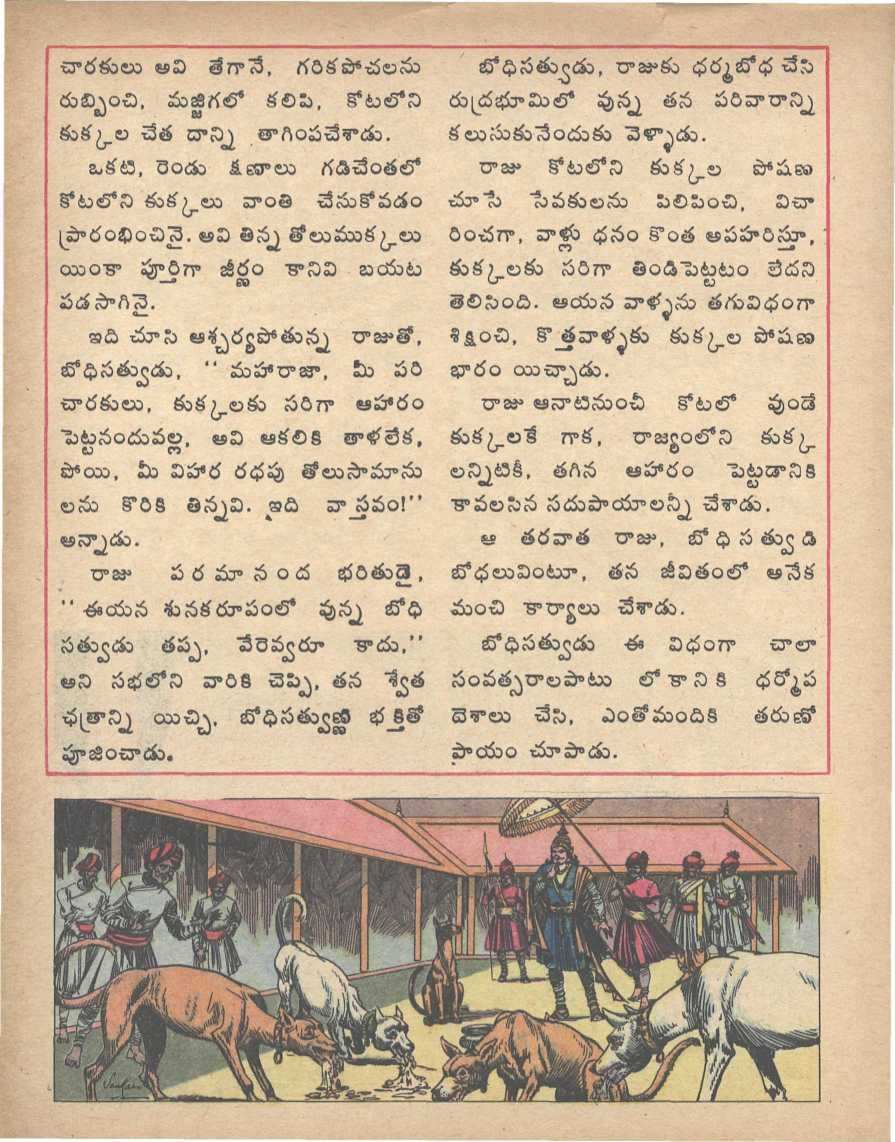 చారకులు అవి తేగానే, గరికపోచలను
రుబ్బించి, మజ్జిగలో కలిపి, కోటలోని
కుక్కల చేత దాన్ని తాగింపచేశాడు.
ఒకటి, రెండు క్షణాలు గడిచేంతలో
కోటలోని కుక్కలు వాంతి చేసుకోవడం
ప్రారంభించినై. అవి తిన్న తోలుముక్కలు
యింకా పూర్తిగా జీర్ణం కానివి బయట
పడసాగినై.
ఇది చూసి ఆశ్చర్యపోతున్న రాజుతో,
బోధిసత్వుడు, ‘‘ మహారాజా, మీ పరి
చారకులు, కుక్కలకు సరిగా ఆహారం
పెట్టనందువల్ల, అవి ఆకలికి తాళలేక,
పోయి, మీ విహార రధపు తోలుసామాను
లను కొరికి తిన్నవి. ఇది వాస్తవం!’’
అన్నాడు.
రాజు పరమానంద భరితుడై,
‘‘ ఈయన శునకరూపంలో వున్న బోధి
సత్వుడు తప్ప, వేరెవ్వరూ కాదు,’’
అని సభలోని వారికి చెప్పి, తన శ్వేత
ఛత్రాన్ని యిచ్చి, బోధిసత్వుణ్ణి భక్తితో
పూజించాడు.
బోధిసత్వుడు, రాజుకు ధర్మబోధ చేసి
రుద్రభూమిలో వున్న తన పరివారాన్ని
కలుసుకునేందుకు వెళ్ళాడు.
రాజు కోటలోని కుక్కల పోషణ
చూసే సేవకులను పిలిపించి, విచా
రించగా, వాళ్లు ధనం కొంత అపహరిస్తూ,
కుక్కలకు సరిగా తిండిపెట్టటం లేదని
తెలిసింది. ఆయన వాళ్ళను తగువిధంగా
శిక్షించి, కొత్తవాళ్ళకు కుక్కల పోషణ
భారం యిచ్చాడు.
రాజు ఆనాటినుంచీ కోటలో వుండే
కుక్కలకే గాక, రాజ్యంలోని కుక్క
లన్నిటికీ, తగిన ఆహారం పెట్టడానికి
కావలసిన సదుపాయాలన్నీ చేశాడు.
ఆ తరవాత రాజు, బోధిసత్వుడి
బోధలువింటూ, తన జీవితంలో అనేక
మంచి కార్యాలు చేశాడు.
బోధిసత్వుడు ఈ విధంగా చాలా
సంవత్సరాలపాటు లోకానికి ధర్మోప
దెశాలు చేసి, ఎంతోమందికి తరుణో
పాయం చూపాడు.